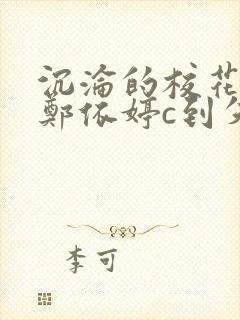 沉淪的校花
鄭依婷c到
李可